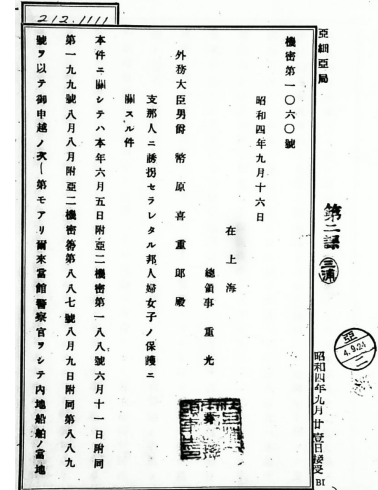 212.1111
亞細亞局
第二課
三浦
亞
4.9.24
二
昭和四年九月廿壹日接受
BI
機密第一〇六〇號
昭和四年九月十六日
在上海
總領事 重光
外務大臣男爵 幣原喜重郎殿
支那人ニ誘拐セラレタル邦人婦女子ノ保護ニ
關スル件
本件ニ關シテハ本年六月五日附亞二機密第一八八號六月十一日附同
第一九九號八月八日附亞二機密第八八七號八月九日附同第八八九
號ヲ以テ御申越ノ次第モアリ爾來當館警察官ヲシテ内地船舶ノ當地